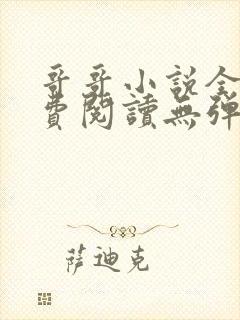 哥哥小説全
費閱讀無彈
萨迪克